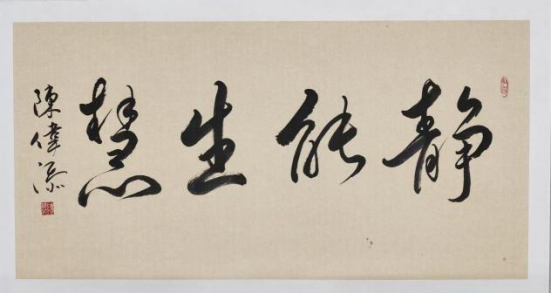 静能生慧
陳偉添